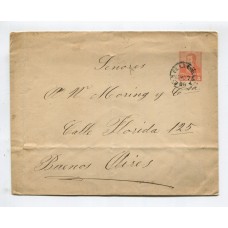 Señores
P. W. Moring y Cía
Calle Florida 125
Buenos Aires